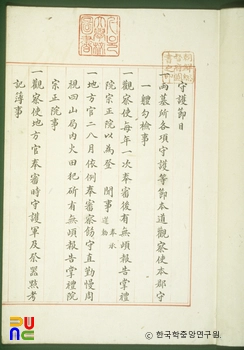 守護節目
一兩墓所各項守護等節本道觀察使本郡守
一體句檢事
一觀察使每年一次奉審後有無頉報告掌禮
院宗正院以爲登 聞事
一地方官二八月依例奉審察飭守直勤慢周
視四山局內火田犯斫有無頉報告掌禮院
宗正院事
一觀察使地方官奉審時守護軍及祭器點考
記簿事
한국학중앙연구원